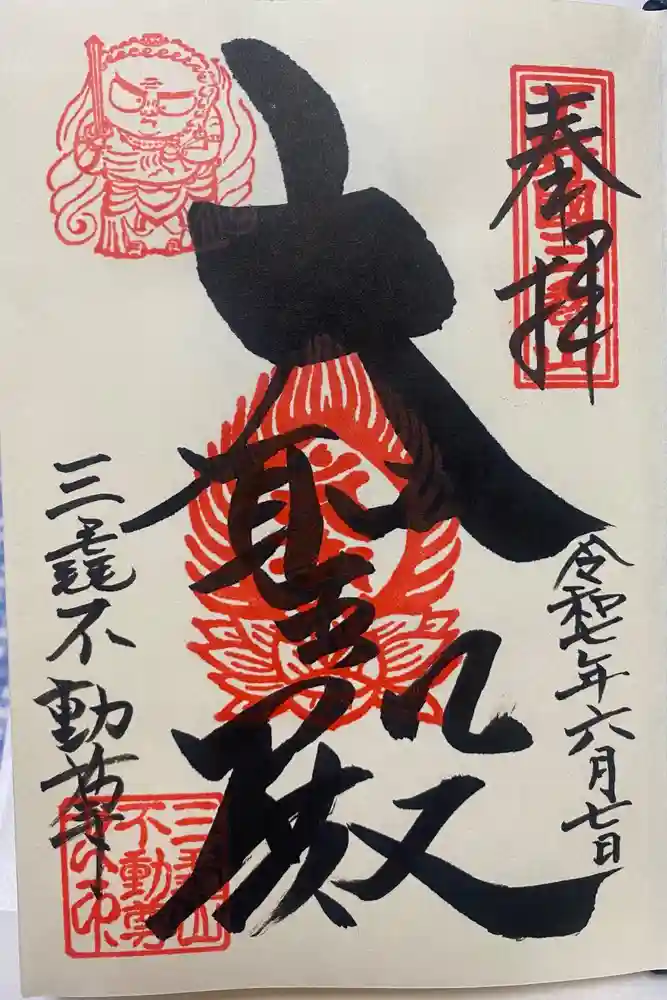 奉拝
令和七年六月七日
大聖殿
三毳不動尊
三毳山
不動尊
之印